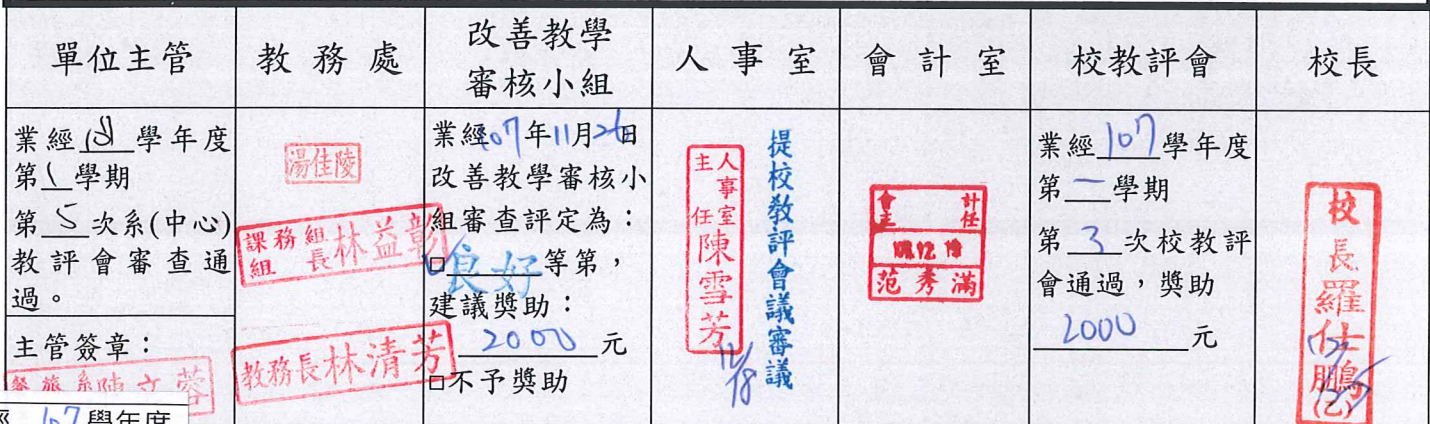 單位主管
教務處
改善教學
審核小組
人事室
會計室
校教評會
校長
業經 107 學年度
第 1 學期
第 5 次系(中心)
教評會審查通
過。
主管簽章：
餐旅系陳文蓉
湯佳陵
課務組
組長林益彰
教務長林清芳
業經107年11月26日
改善教學審核小
組審查評定為：
□良好等第，
建議獎助：
2000元
□不予獎助
人事室
主任陳雪芳
12/18
提校教評會議審議
會計
主任
范秀滿
業經107學年度
第一學期
第3次校教評
會通過，獎助
2000元
校長羅仕鵬(乙)
107學年度